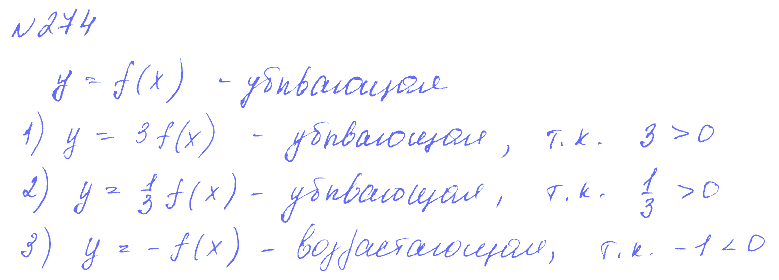 №274
y = f(x) - убывающая
1) y = 3f(x) - убывающая, т.к. 3 > 0
2) y = 1/3 f(x) - убывающая, т.к. 1/3 > 0
3) y = -f(x) - возрастающая, т.к. -1 < 0